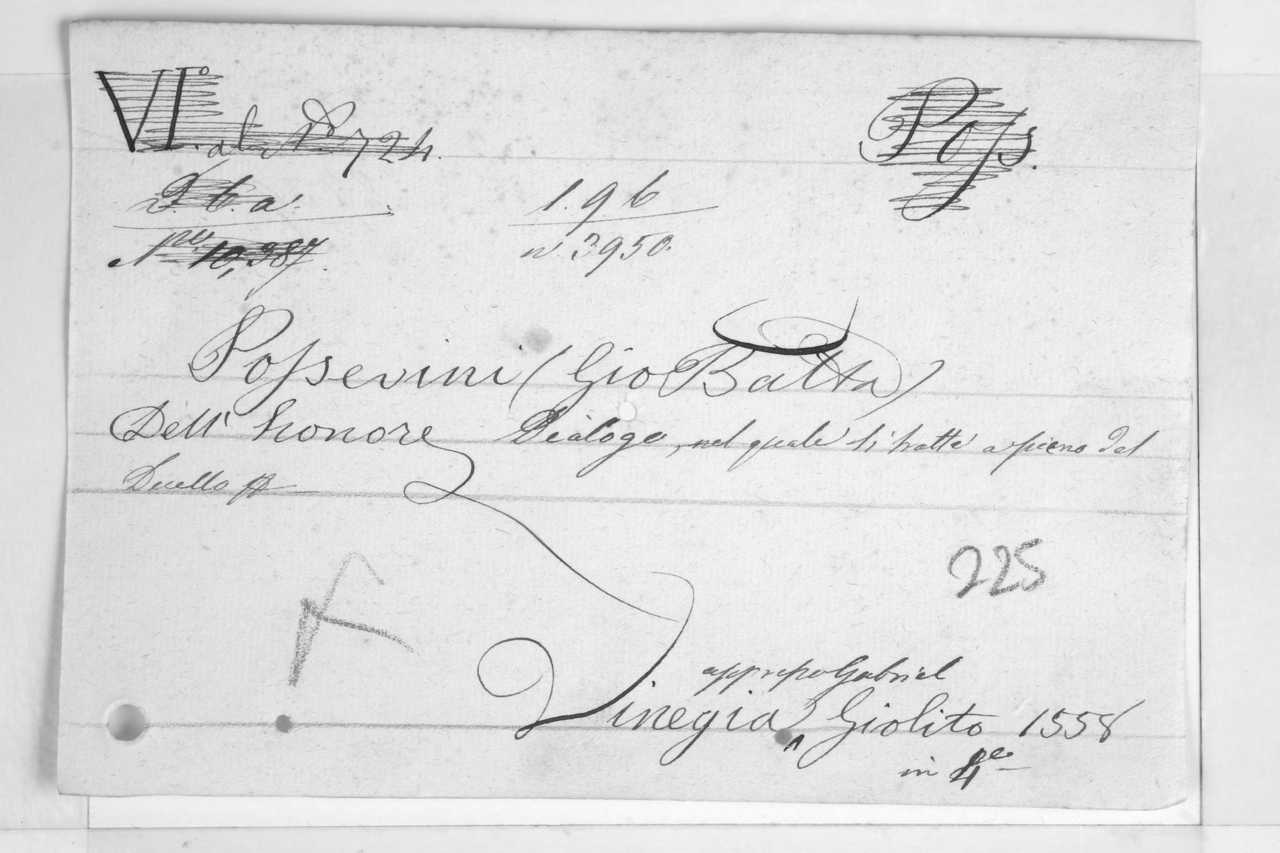 VI.° al N° 724. Poss.
2. 6. a. 1. 9. 6
N.ro 10,387. n. 3950.
Possevini (Gio Batta)
Dell' honore Dialogo, nel quale si tratta a pieno del
Duello
225
appresso Gabriel
Vinegia Giolito 1558
in 4to